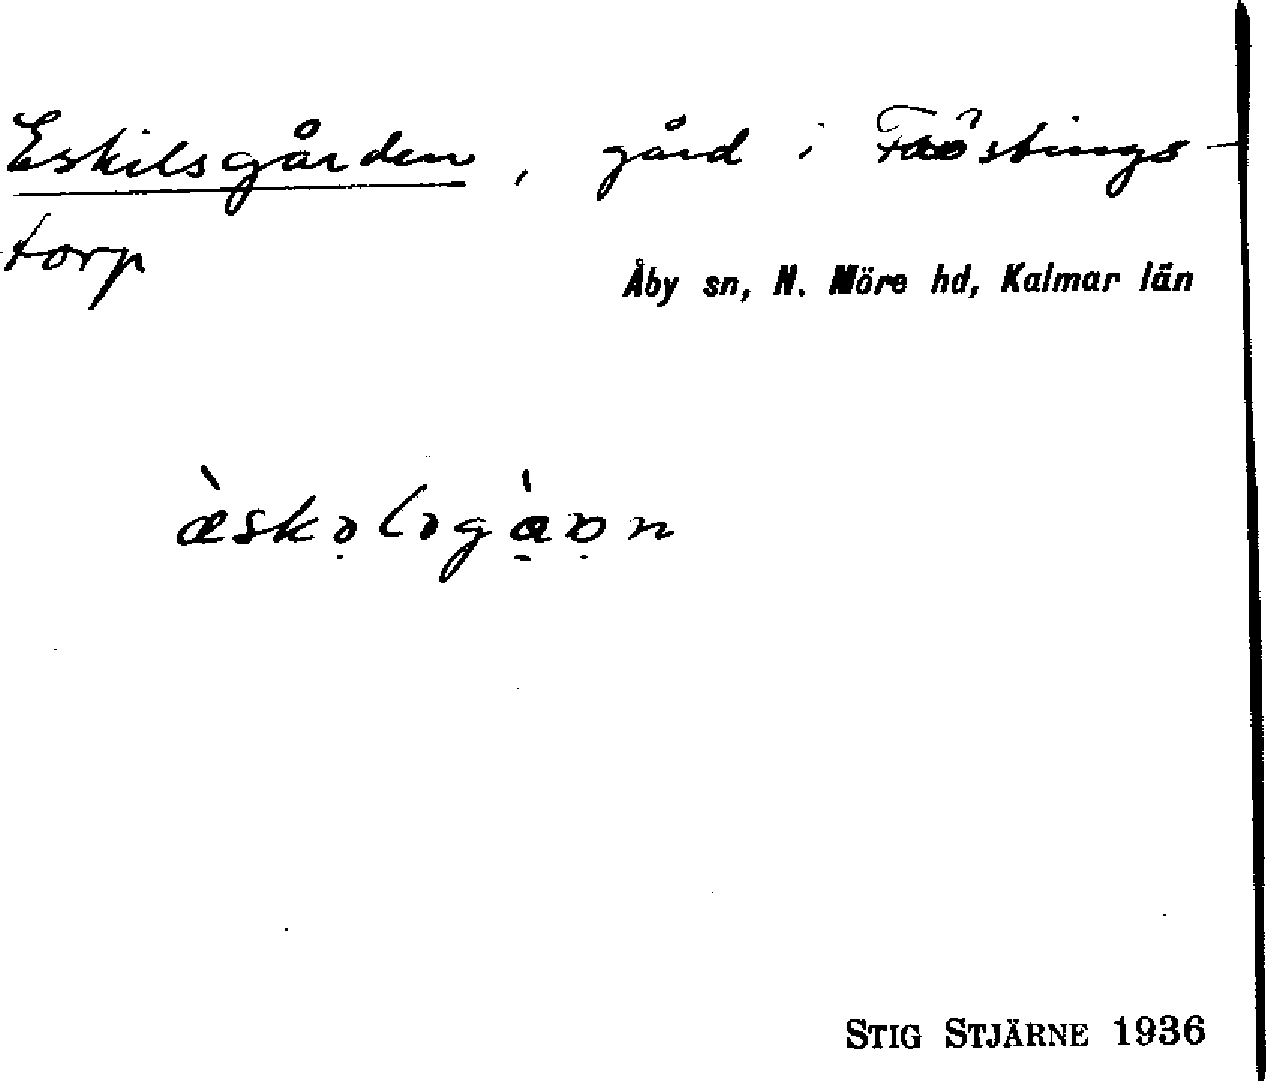 Eskilsgården, gård i Fröstings-
torp
Åby sn, N. Möre hd, Kalmar län
STIG STJÄRNE 1936